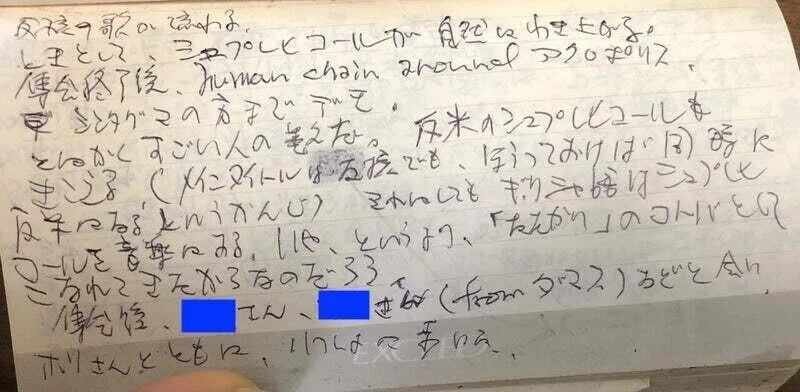 反核の歌が流れる。
ときとして、シュプレヒコールが自然にわき上がる。
集会終了後、human chain around アクロポリス、
シンタグマの方までデモ。
とにかくすごい人の 反米のシュプレヒコールも
きこえる(メインタイトルは反核でも、ほうっておけば同時に
反米になるというかんじ) それにしてもギリシャ語はシュプレヒ
コールを音楽にする、いや、というより、「たたかい」のコトバとして
こなれてきたからなのだろう
集会後、 さん、 さん(from ダマス)などと会い
ホリさんとともに、いっしょに
EXCEED